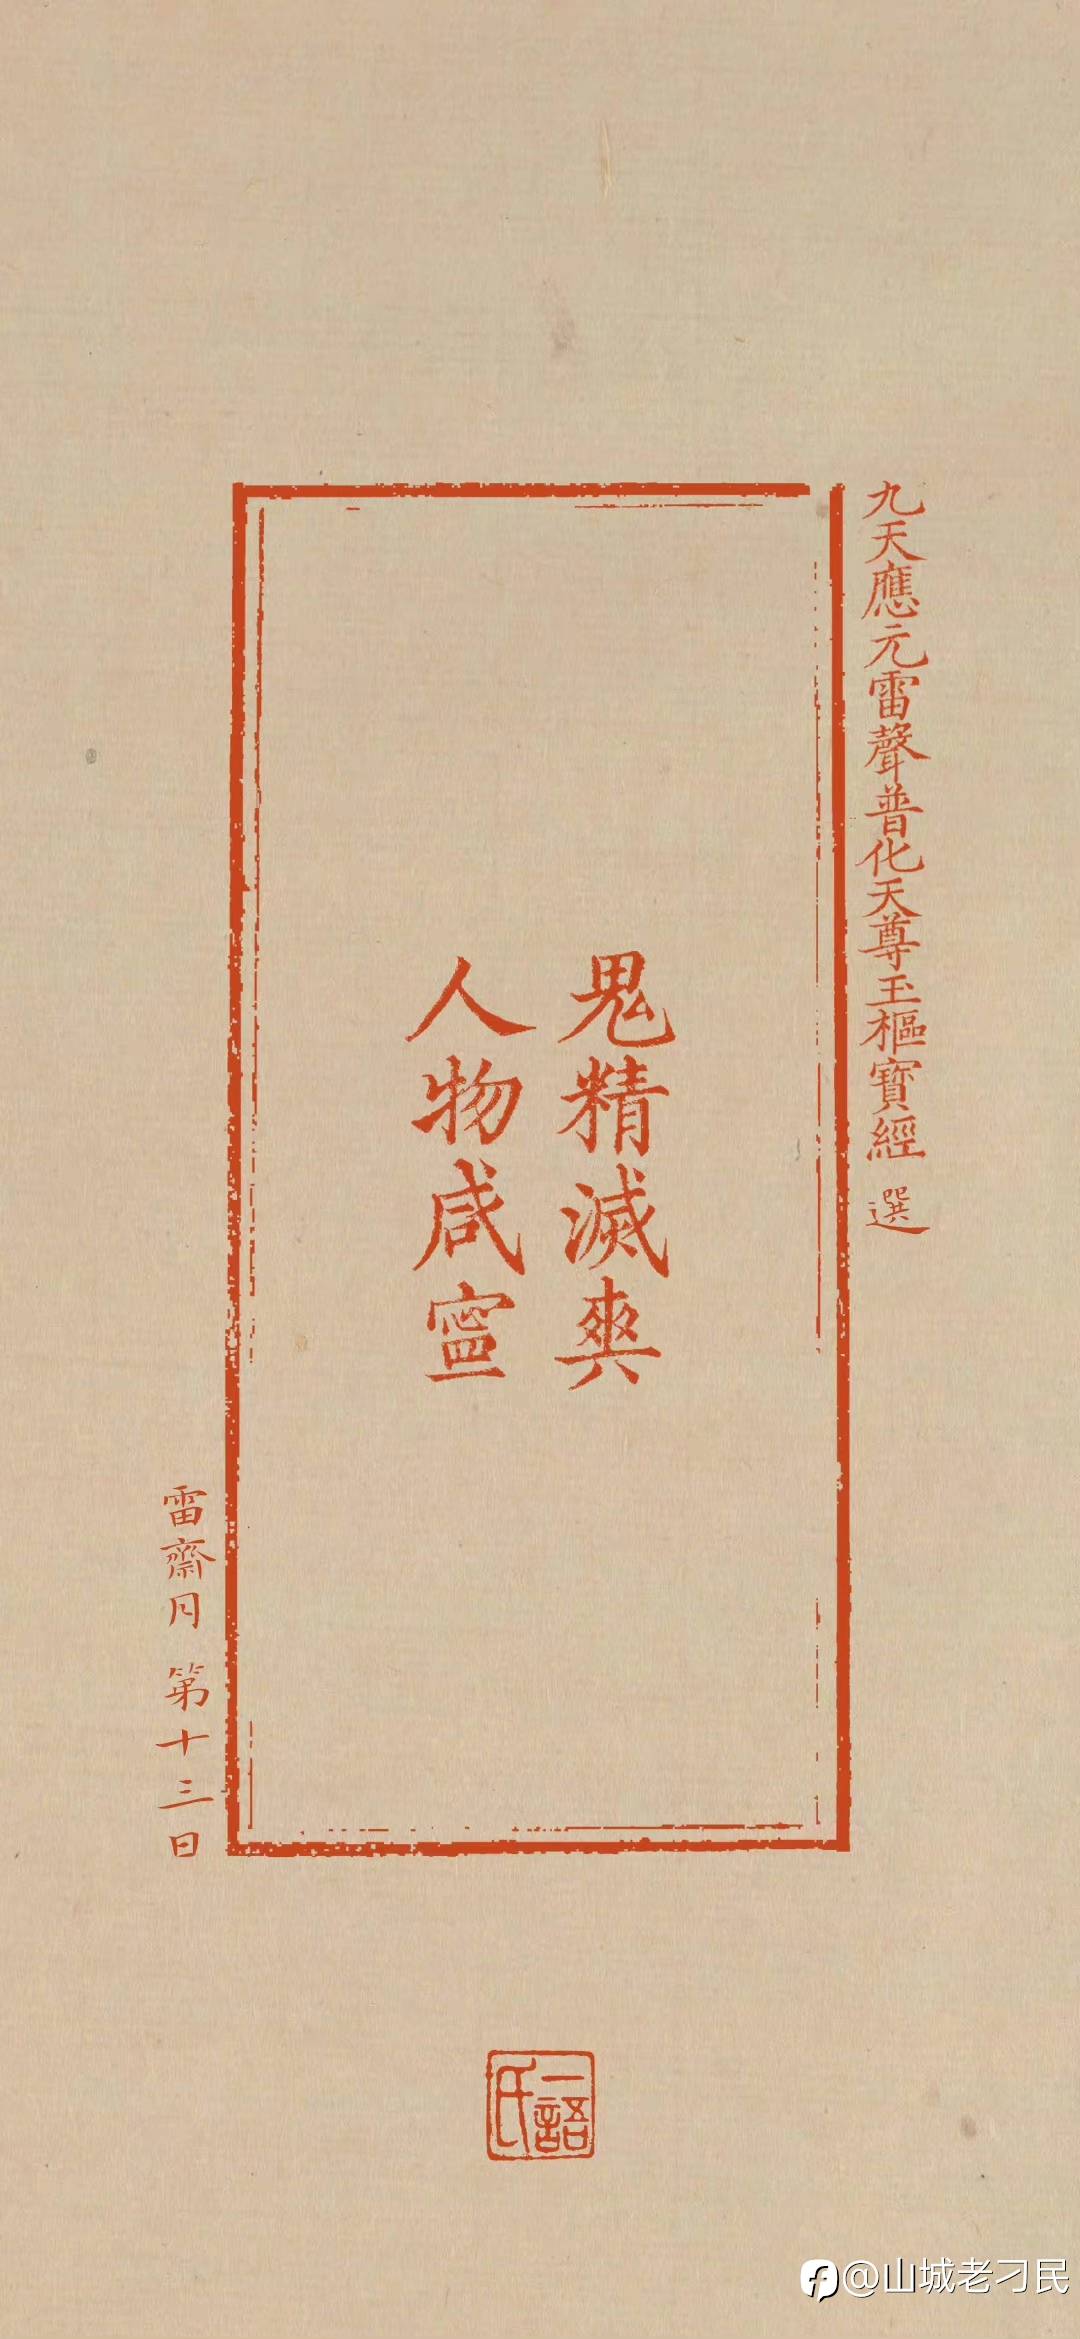 九天應元雷聲普化天尊玉樞寶經 選
鬼精滅爽
人物咸寍
雷齋月 第十三日
一語氏
@山城老刁民